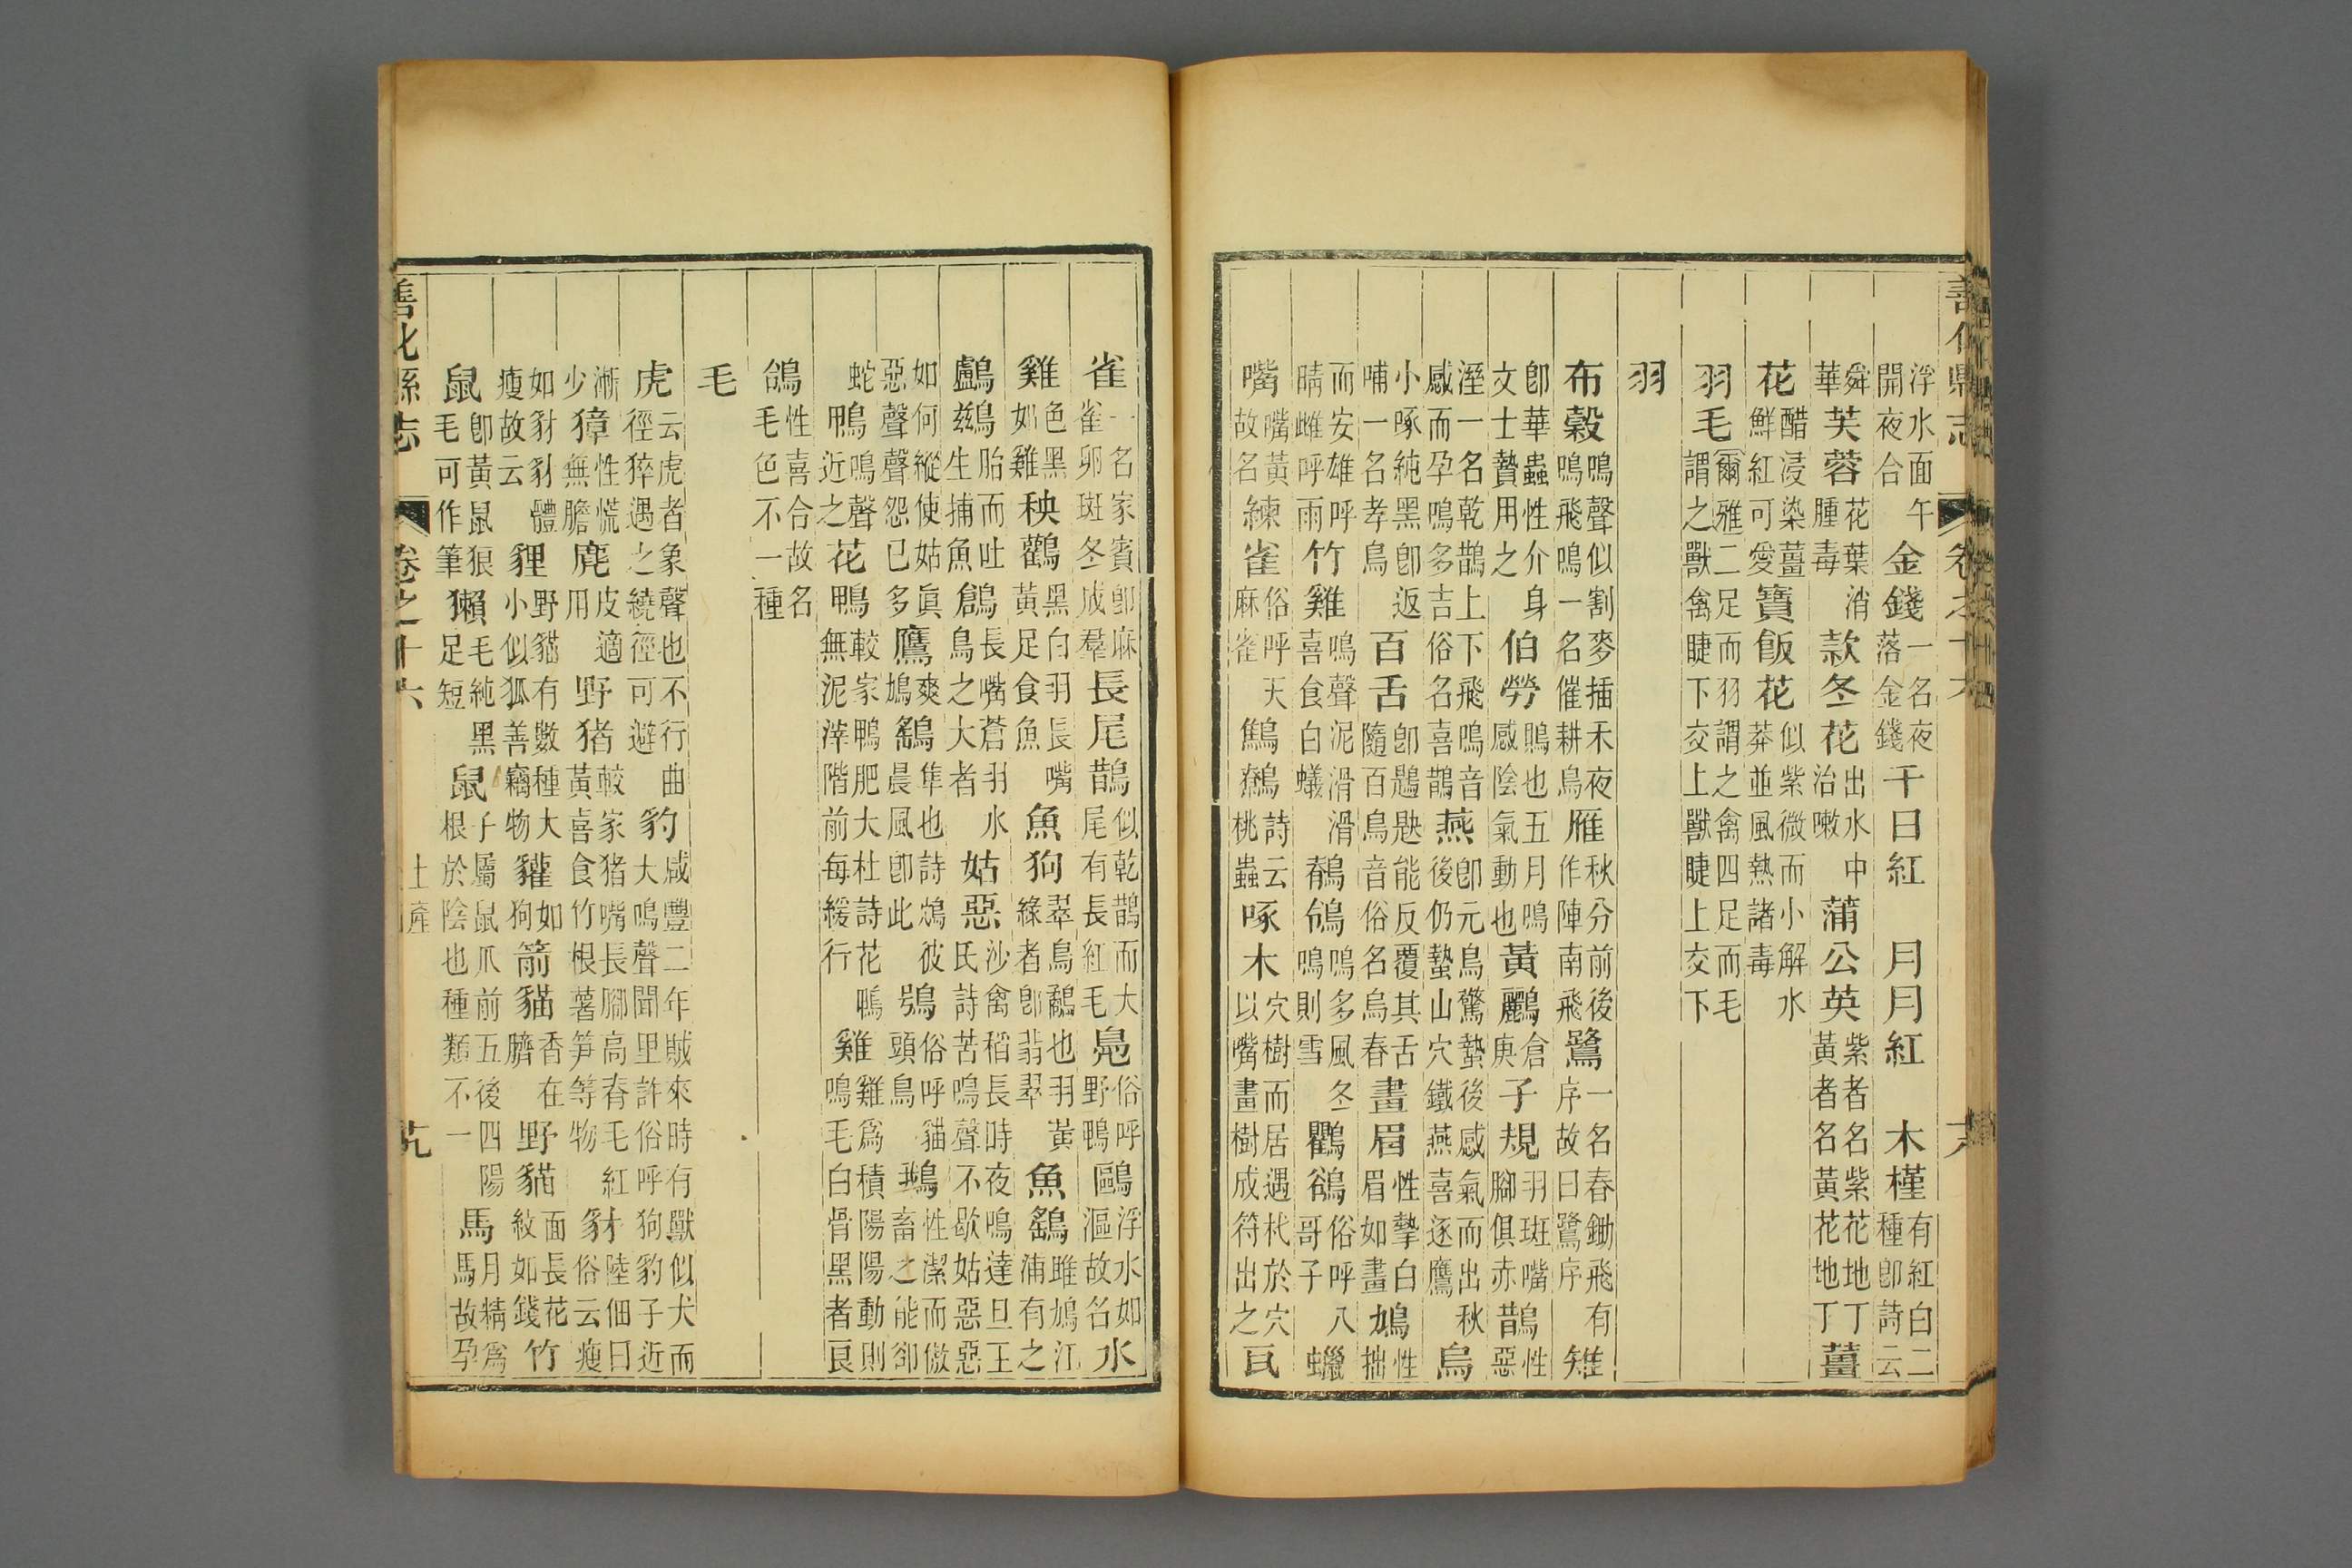 善化縣志 卷之十六 十八
浮水面午開夜合 金錢 一名夜落金錢 千日紅 月月紅 木槿 有紅白二種卽詩云
舜華 芙蓉 花葉消腫毒 款冬花 出水中治嗽 蒲公英 紫者名紫花地丁黃者名黃花地丁 薑
花 醋浸染薑鮮紅可愛 寶飯花 似紫微而小解水莽並風熱諸毒
羽毛 爾雅二足而羽謂之禽四足而毛謂之獸禽睫下交上獸睫上交下
羽
布穀 鳴聲似割麥插禾夜鳴飛鳴一名催耕鳥 雁 秋分前後作陣南飛 鷺 一名春鋤飛有序故曰鷺序 雉
卽華蟲性介身文士贄用之 伯勞 鵙也五月鳴感陰氣動也 黃鸝 倉庚 子規 羽斑嘴腳俱赤 鵲 性惡
溼一名乾鵲上下飛鳴音感而孕鳴多吉俗名喜鵲 燕 卽元鳥驚蟄後感氣而出秋後仍蟄山穴鐵燕喜逐鷹 烏
小啄純黑卽返哺一名孝鳥 百舌 卽鶗鴂能反覆其舌隨百鳥音俗名烏春 畫眉 性摯白眉如畫 鳩 性拙
而安雄呼晴雌呼雨 竹雞 鳴聲泥滑滑喜食白蟻 鶺鴒 鳴多風冬鳴則雪 鸜鵒 俗呼八哥子 蠟
嘴 嘴黃故名 練雀 俗呼天麻雀 鷦鷯 詩云桃蟲 啄木 穴樹而居遇杙於穴以嘴畫樹成符出之 瓦
雀 一名家賓卽麻雀卵斑冬成羣 長尾鵲 似乾鵲而大尾有長紅毛 鳧 俗呼野鴨 鷗 浮水如漚故名 水
雞 色黑如雞 秧鸛 黑白羽長嘴黃足食魚 魚狗 翠鳥鷸也羽黃綠者卽翡翠 魚鷂 雎鳩江浦有之
鸕鷀 胎而吐生捕魚 鶬 長嘴蒼羽水鳥之大者 姑惡 沙禽稻長時夜鳴達旦王氏詩苦鳴聲不歇姑惡惡
如何縱使姑眞惡聲聲怨已多 鷹 爽鳩 鷂 隼也詩鴥彼晨風卽此 鴞 俗呼貓頭鳥 鵝 性潔而傲畜之能卻
蛇 鴨 鳴聲近之 花鴨 較家鴨肥大杜詩花鴨無泥滓階前每緩行 雞 雞爲積陽陽動則鳴毛白骨黑者良
鴿 性喜合故名毛色不一種
毛
虎 云虎者象聲也不行曲徑猝遇之繞徑可避 豹 咸豐二年賊來時有獸似犬而大鳴聲聞里許俗呼狗豹子近
漸少 獐 性慌無膽 麂 皮適用 野猪 較家猪嘴長腳高脊毛紅黃喜食竹根薯笋等物 豺 陸佃曰俗云瘦
如豺豺體瘦故云 貍 野貓有數種大小似狐善竊物 貛 如狗 箭貓 香在臍 野貓 面長花紋如錢 竹
鼠 卽黃鼠狼毛可作筆 獺 毛純黑足短 鼠 子屬鼠爪前五後四陽根於陰也種類不一 馬 月精爲馬故孕
善化縣志 卷之十六 土產 十九